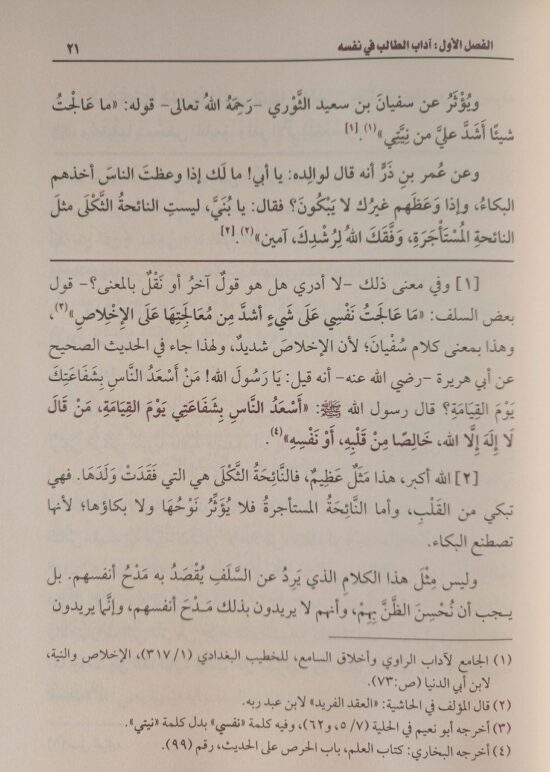 الفصل الأول: آداب الطالب في نفسه
٢١
ويُؤْثَرُ عن سفيانَ بن سعيد الثَّوْري -رَحِمَهُ اللهُ تعالى- قوله: «ما عَالَجْتُ
شيئًا أَشَدَّ عليَّ من نِيَّتِي»(١).[١]
وعن عُمر بنِ ذَرٍّ أنه قال لوالِده: يا أبي! ما لَك إذا وعظتَ الناسَ أخذهم
البكاءُ، وإذا وَعَظَهم غيرُك لا يَبْكُونَ؟ فقال: يا بُنَيَّ، ليستِ النائحةُ الثَّكْلَى مثلَ
النائحةِ المُسْتَأْجَرَةِ، وَفَّقَكَ اللهُ لِرُشْدِكَ، آمين»(٢).[٢]
[١] وفي معنى ذلك -لا أدري هل هو قولٌ آخرُ أو نَقْلٌ بالمعنى؟- قول
بعض السلف: «مَا عَالَجَتُ نَفْسِي عَلَى شَيءٍ أشدَّ مِن مُعَالَجَتِهَا عَلَى الإِخْلاصِ»(٣)،
وهذا بمعنى كلام سُفْيانَ؛ لأن الإخلاصَ شديدٌ، ولهذا جاء في الحديث الصحيح
عن أبي هريرة -رضي الله عنه- أنه قيل: يَا رَسُولَ الله! مَنْ أَسْعَدُ النَّاسِ بِشَفَاعَتِكَ
يَوْمَ القِيَامَةِ؟ قال رسول الله ﷺ: «أَسْعَدُ النَّاسِ بِشَفَاعَتِي يَوْمَ القِيَامَةِ، مَنْ قَالَ
لَا إِلَهَ إِلَّا الله، خَالِصًا مِنْ قَلْبِهِ، أَوْ نَفْسِهِ»(٤).
[٢] الله أكبر، هذا مَثَلٌ عَظِيمٌ، فالنَّائِحَةُ الثَّكْلَى هي التي فَقَدَتْ وَلَدَهَا. فهي
تبكي من القَلْبِ، وأما النَّائِحَةُ المستأجرةُ فلا يُؤَثِّرُ نَوْحُهَا ولا بكاؤها؛ لأنها
تصطنع البكاء.
وليس مِثْلَ هذا الكلامِ الذي يَرِدُ عن السَّلَفِ يُقْصَدُ به مَدْحُ أنفسهم. بل
يـجب أن نُحْسِنَ الظَّنَّ بِهِمْ، وأنهم لا يريدون بذلك مَـدْحَ أنفسهم، وإنَّما يريدون
(١) الجامع لآداب الراوي وأخلاق السامع، للخطيب البغدادي (١/ ٣١٧)، الإخلاص والنية،
لابن أبي الدنيا (ص:٧٣).
(٢) قال المؤلف في الحاشية: «العقد الفريد» لابن عبد ربه.
(٣) أخرجه أبو نعيم في الحلية (٧/ ٥، و٦٢)، وفيه كلمة «نفسي» بدل كلمة «نيتي».
(٤) أخرجه البخاري: كتاب العلم، باب الحرص على الحديث، رقم (٩٩).